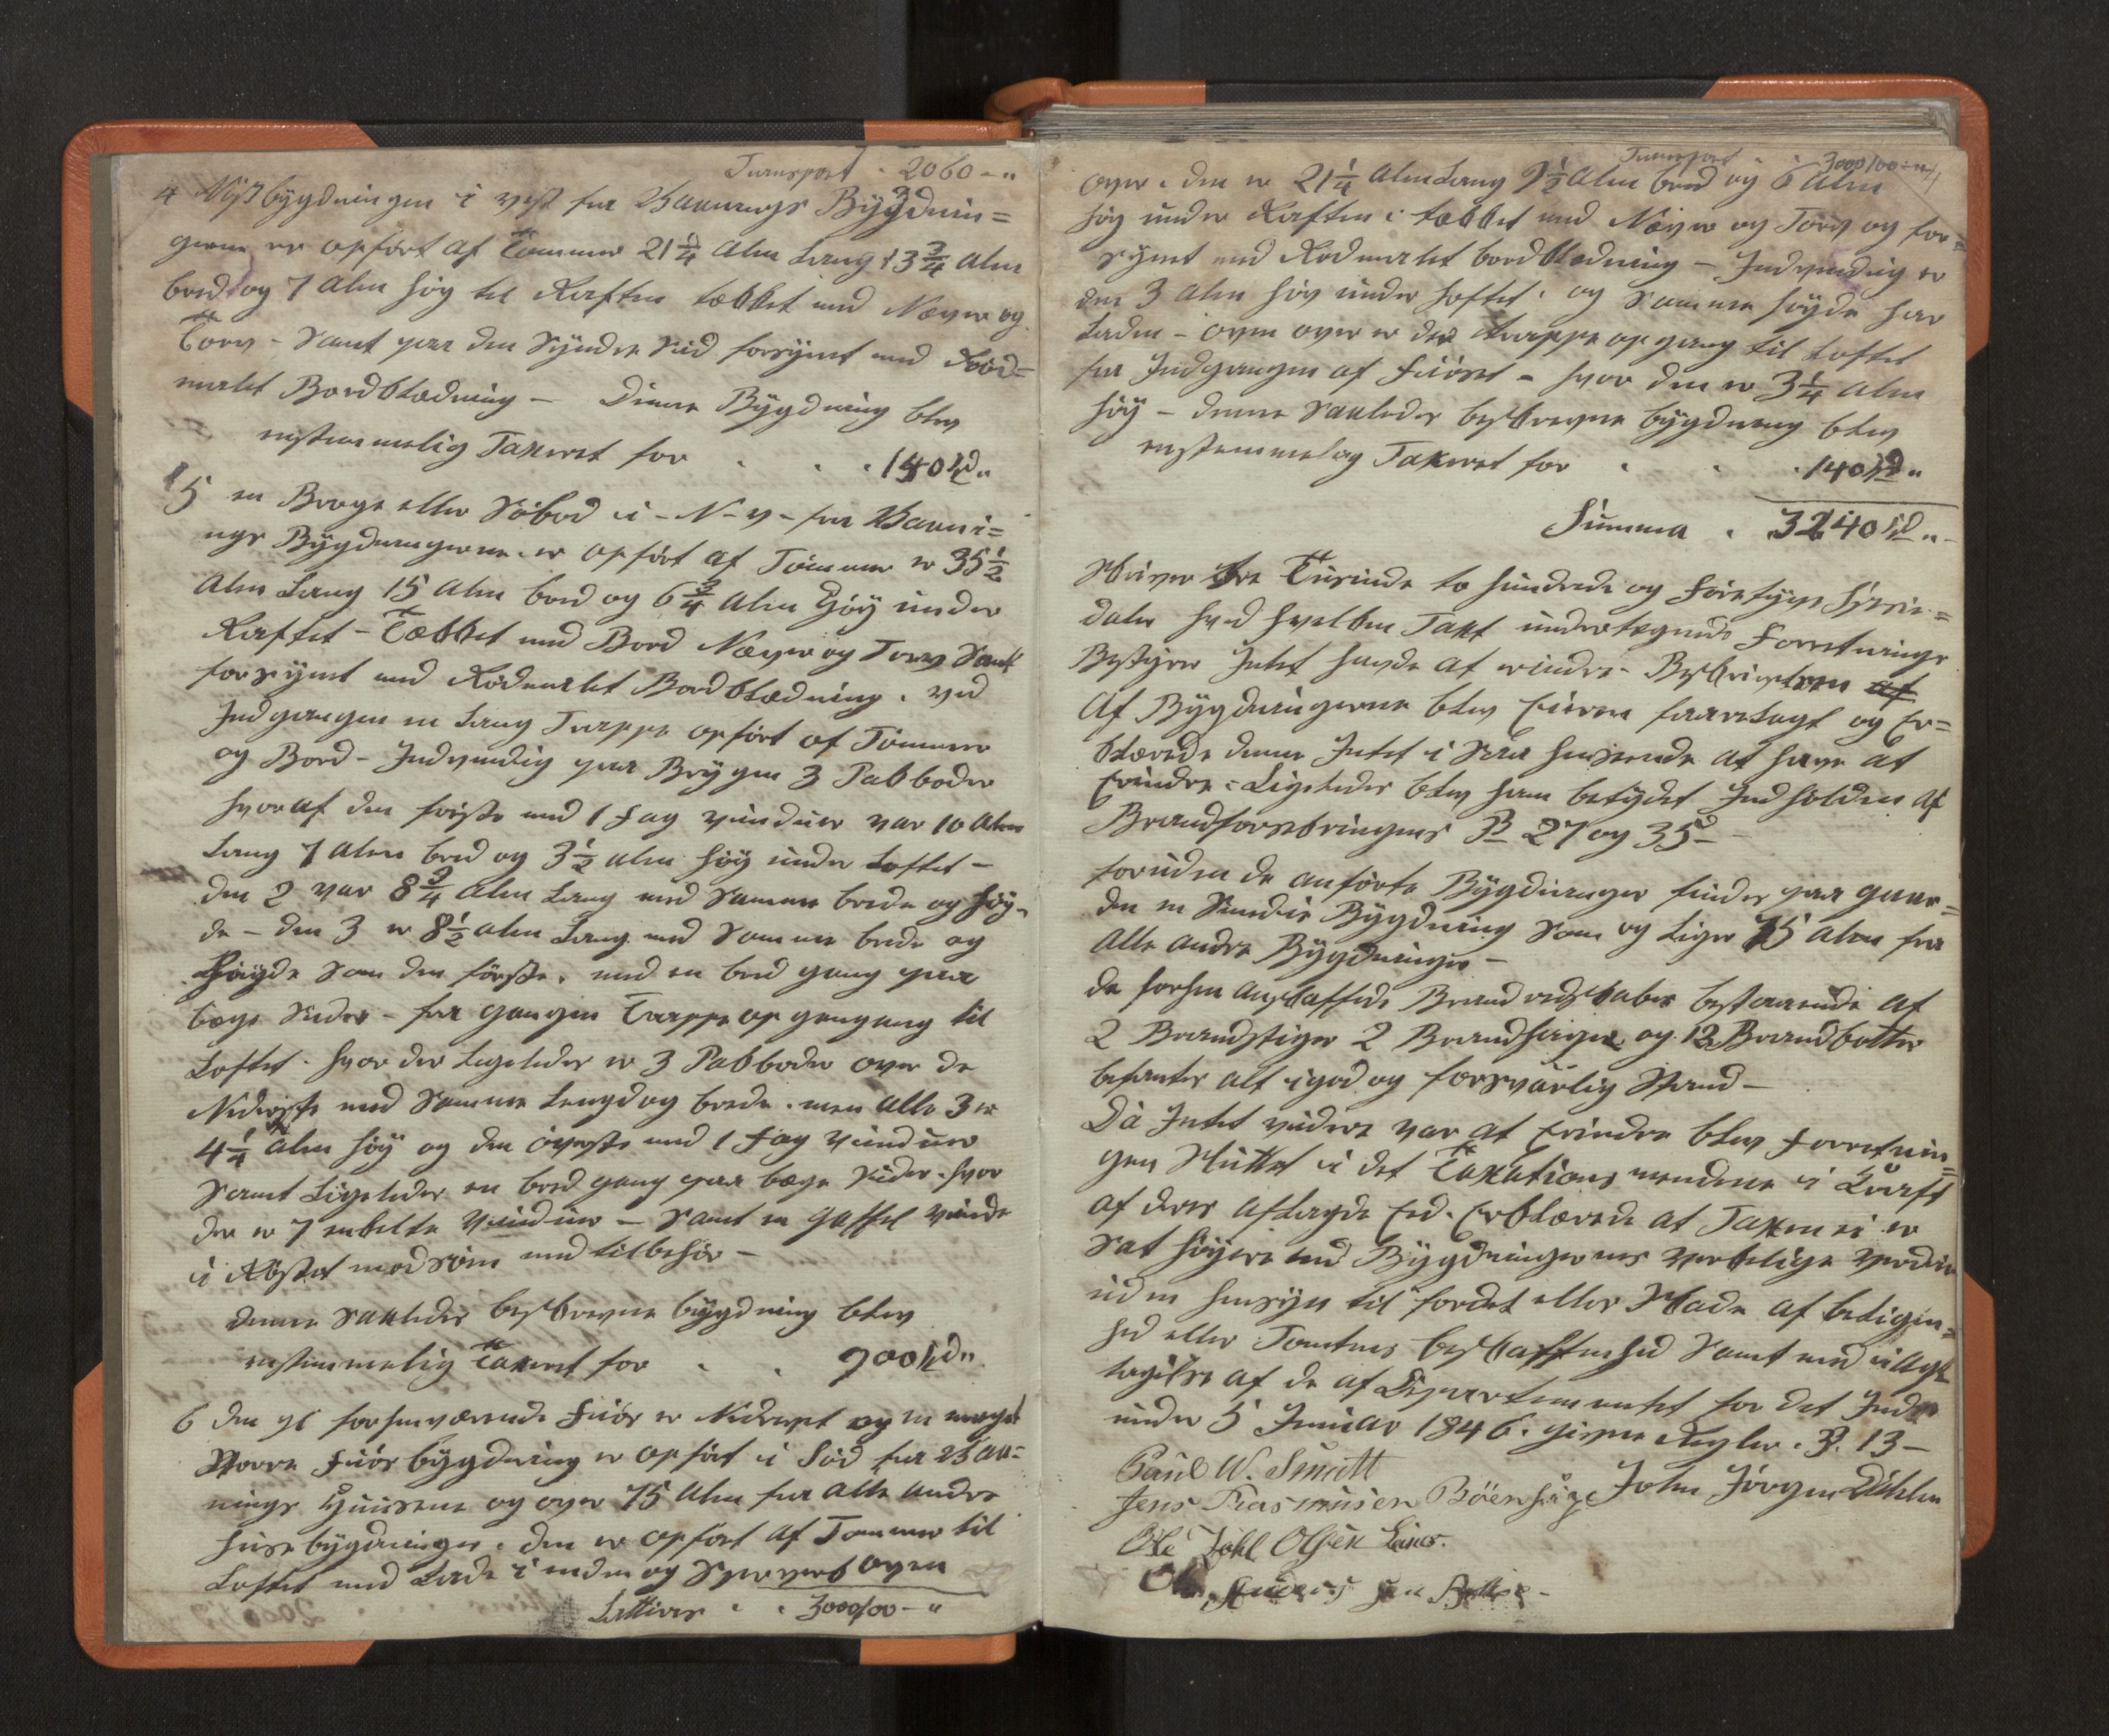 Transport . 2060 - "
4 Nøstbygdningen i vest fra Vaanings Bygdnin=
gerne er opført af Tømmer 21 1/4 Alen Lang 13 3/4 Alen
bred og 7 Alen høy til Raften tækket med Næver og
Torv - Samt paa den Syndre Siid forsynet med Rød=
malet Bordklædning - Denne Bygdning blev
enstemmelig Taxeret for . . . 140 Spd "
5 en Brøge eller Søbod i - N - v - fra Vaani=
ngs Bygdningerne. er opført af Tømmer er 35 1/2
Alen Lang 15 Alen bred og 6 3/4 Alen Høy under
Raftet - Tækket med Bord Næver og Torv Samt
forsynet med Rødmalet Bordklædning. ved
Indgangen en Lang Trappe opført af Tømmer
og Bord - Indvendig paa Brygen 3 Pakboder
hvoraf den første med 1 Fag vinduer var 10 Alen
Lang 7 Alen bred og 3 1/2 Alen høy under Loftet -
den 2 var 8 3/4 Alen Lang med Samme brede og høy-
de - den 3 er 8 1/2 Alen Lang med Samme brede og
Høyde Som den første. med en bred gang paa
bæge Sider - fra gangen Trappe op gengang til
Loftet. hvor der Ligeledes er 3 Pakboder over de
Nederste med Samme Lengd og brede. men Alle 3 er
4 1/4 Alen høy og den øverste med 1 Fag vinduer
Samt Ligeledes en bred gang paa bæge Sider. hvor
der er 7 enkelte Vinduer - Samt en Gaffel vinde
i Røstet mod søen med tilbehør -
denne Saaledes beskrevne bygdning blev
enstemmelig Taxeret for . . 700 Spd "
6 den of forhenværende Fiøs er Nedrevet og en meget
Større Fiøs bygdning er opført i Sød fra Vaa=
nings Huusene og over 75 Alen fra Alle andre
huusebygdninger. den er opført af Tømmer til
Loftet med Lade i enden og Sperreverk oven
Lattives . . 3000/00 - "
Transport . 3000/00 - "
over. den er 21 1/4 Alen Lang 9 1/2 Alen bred og 6 Alen
høy under Raften i tækket med Næver og Torv og for=
synet med Rødmalet bordklædning - Indvendig er
den 3 Alen høy under Loftet. og Samme høyde har
Laden - oven over er der Trappe op gang til Loftet
fra Indgangen af Fiøset - hvor den er 3 1/4 Alen
høy - denne Saaledes beskrevne bygdning blev
enstemmelig Taxeret for . . . 140 Spd "
Summa . 3240 Spd " -
Skriver tre Tusinde to hundrede og Føretyve Spesie=
daler hved hvelken Taxt undertegnede Forretnings
Bestyrer Intet havde at erindre - Beskrivelsen af
Af Bygdningerne blev Eieren forelagt og Er=
klærede denne Intet i Saa henseende at have at
Erindre = Ligeledes blev ham betydet Indholden af
Brandforsekringens § 27 og 35 -
foruden de anførte Bygdninger findes paa gaar=
den en Smedie Bygdning Som og Liger 75 Alen fra
Alle andre Bygdninger -
de forhen anskaffede Brandredskaber bestaaende af
2 Brandstiger 2 Brandhager og 12 Brandbøtter
befantes alt i god og forsvarlig Stand -
Da Intet videre var at Erindre blev Forretnin=
gen Sluttet i det Taxations mendene i Kraft
af deres aflagde Eed. Erklærede at Taxten ei er
Sat høyere end Bygdningernes verkelige Verdie
uden hensyn til fordel eller Skade af beligen=
hed eller Tomtens beskaffenhed Samt med iagt
tagelse af de af Departementet for det Indre
under 5 Januar 1846. givne Regler. §. 13 -
Paul W. Smidtt
Jens Rasmusen John Jørgen Dahlen
Ole Johl Olsen
Ole